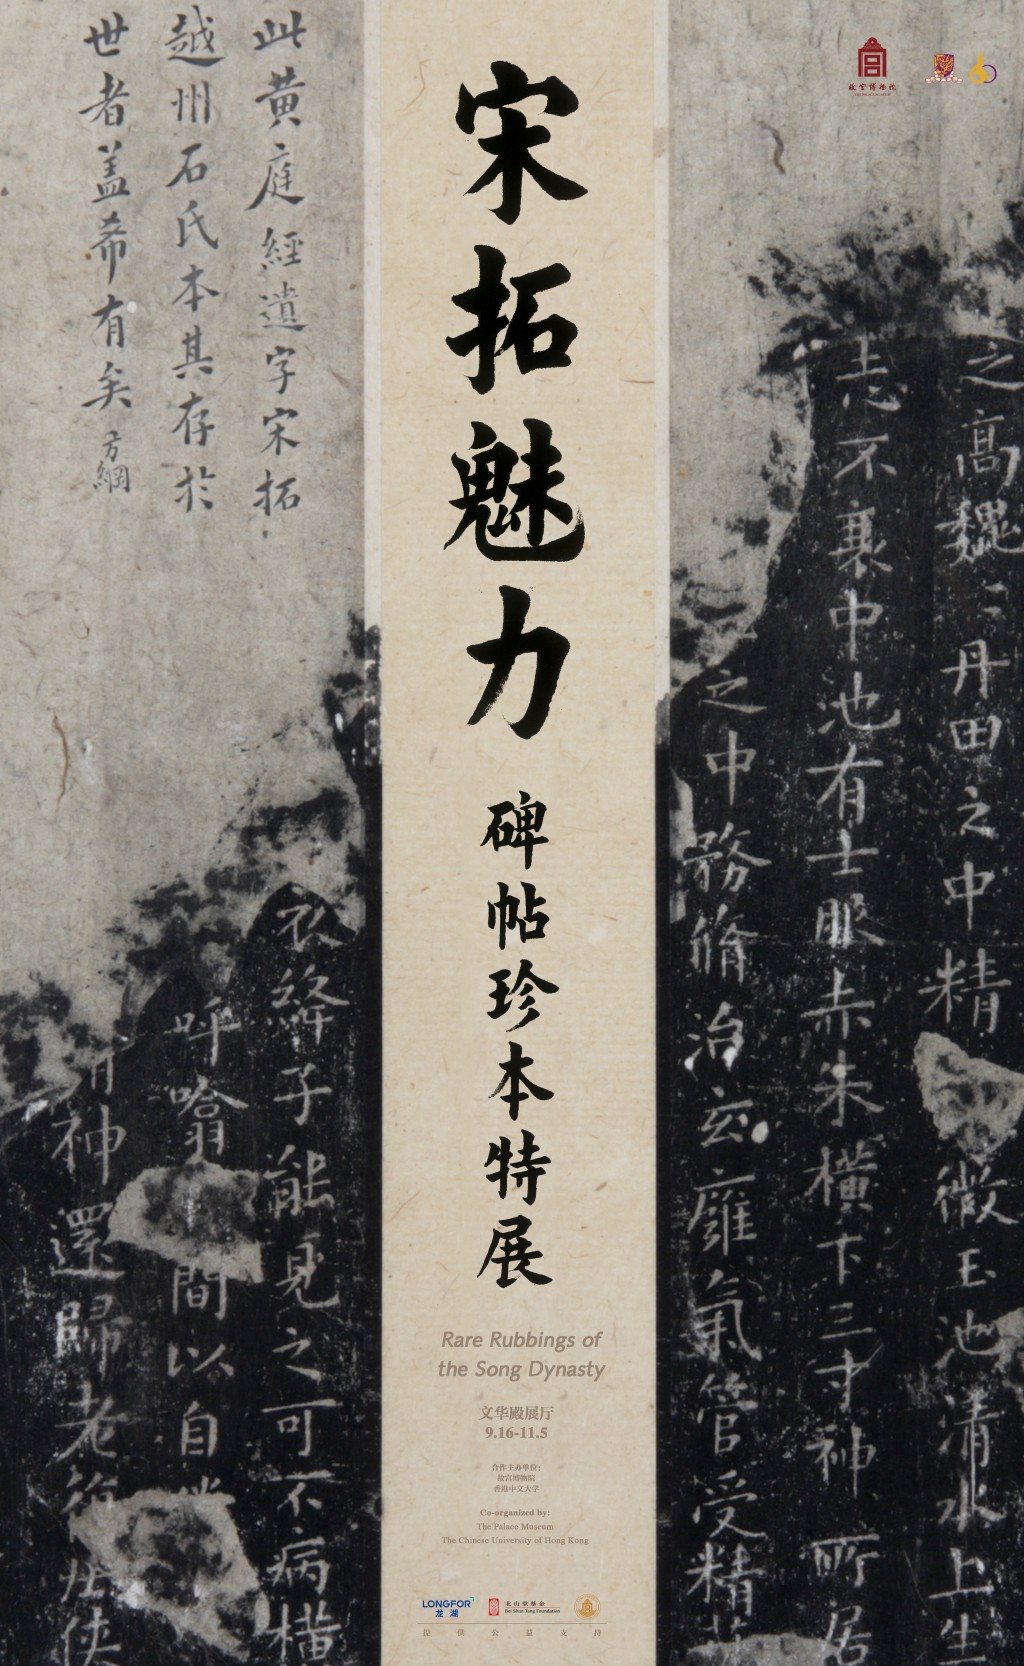 宋拓魅力
碑帖珍本特展
Rare Rubbings of
the Song Dynasty
文华殿展厅
9.16-11.5
合作主办单位:
故宫博物院
香港中文大学
Co-organized by:
The Palace Museum
The Chinese University of Hong Kong
LONGFOR
龙湖
北山堂基金
Bei Shan Tang Foundation
提供公益支持
故宫博物院
此黄庭經遺字宋拓
越州石氏本其存於
世者盖希有矣 方綱
之高巍〻丹田之中精微玉池清水上生
志不衰中池有士服赤朱橫下三寸神所居
之中務脩治玄癰氣管受精
衣絳子能見之可不病橫
呼噏間以自
神還歸老
俠